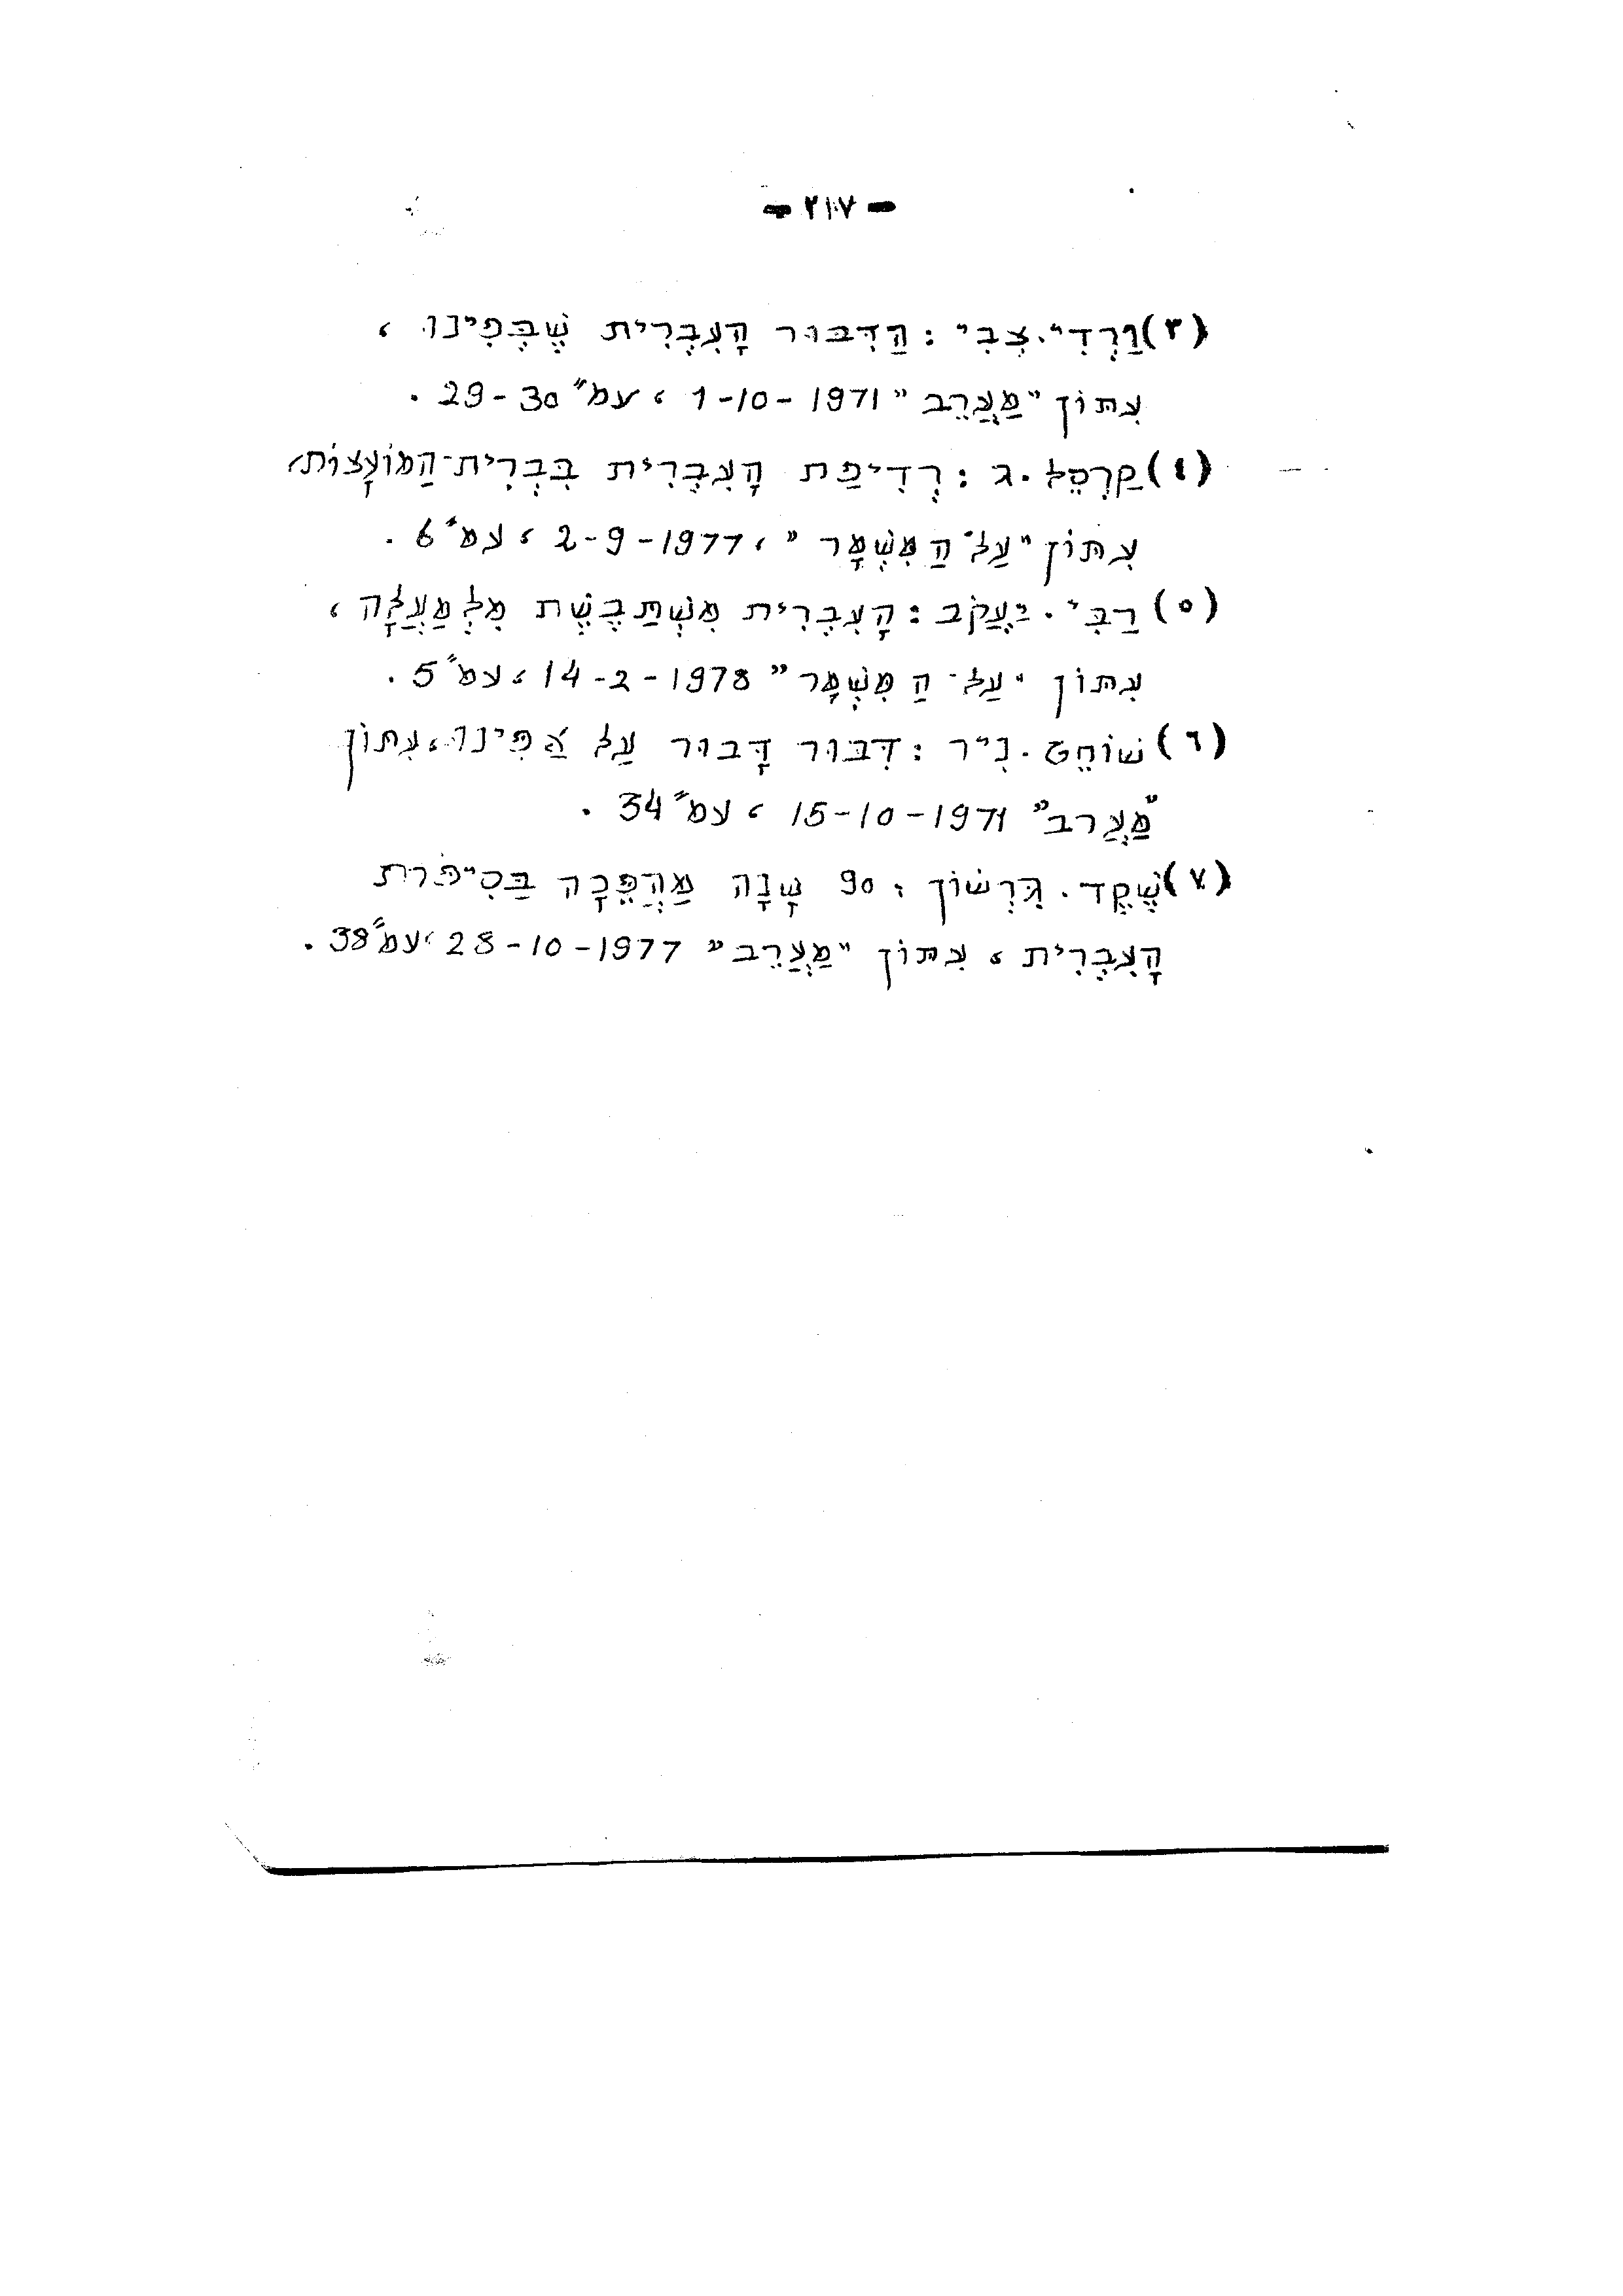 - ٢١٧ -
(٣) וַרְדִי. צְבִי : הַדִּבּוּר הָעִבְרִית שֶׁבְּפִינוּ ،
עִתּוֹן "מַעֲרֵב" 1971-10-1 ، עמ״ 30-29 .
(٤) קַרְסֵל. ג : רְדִיפַת הָעִבְרִית בִּבְרִית-הַמּוֹעָצוֹת،
עִתּוֹן "עַל-הַמִּשְׁמָר" ، 1977-9-2 ، עמ״ 6 .
(٥) רַבִּי. יַעֲקֹב : הָעִבְרִית מִשְׁתַּבֶּשֶׁת מִלְמַעֲלָה ،
עִתּוֹן "עַל-הַמִּשְׁמָר" 1978-2-14 ، עמ״ 5 .
(٦) שׁוֹחֵט. נִיר : דִּבּוּר דָּבוּר עַל אַפֵּינוּ ، עִתּוֹן
"מַעֲרב" 1971-10-15 ، עמ״ 34 .
(٧) שָׁקֶד. גֵּרְשׁוֹן : 90 שָׁנָה מַהְפֵּכָה בַּסִּיפֹּרֶת
הָעִבְרִית ، עִתּוֹן "מַעֲרֵב" 1977-10-28 ، עמ״ 38 .